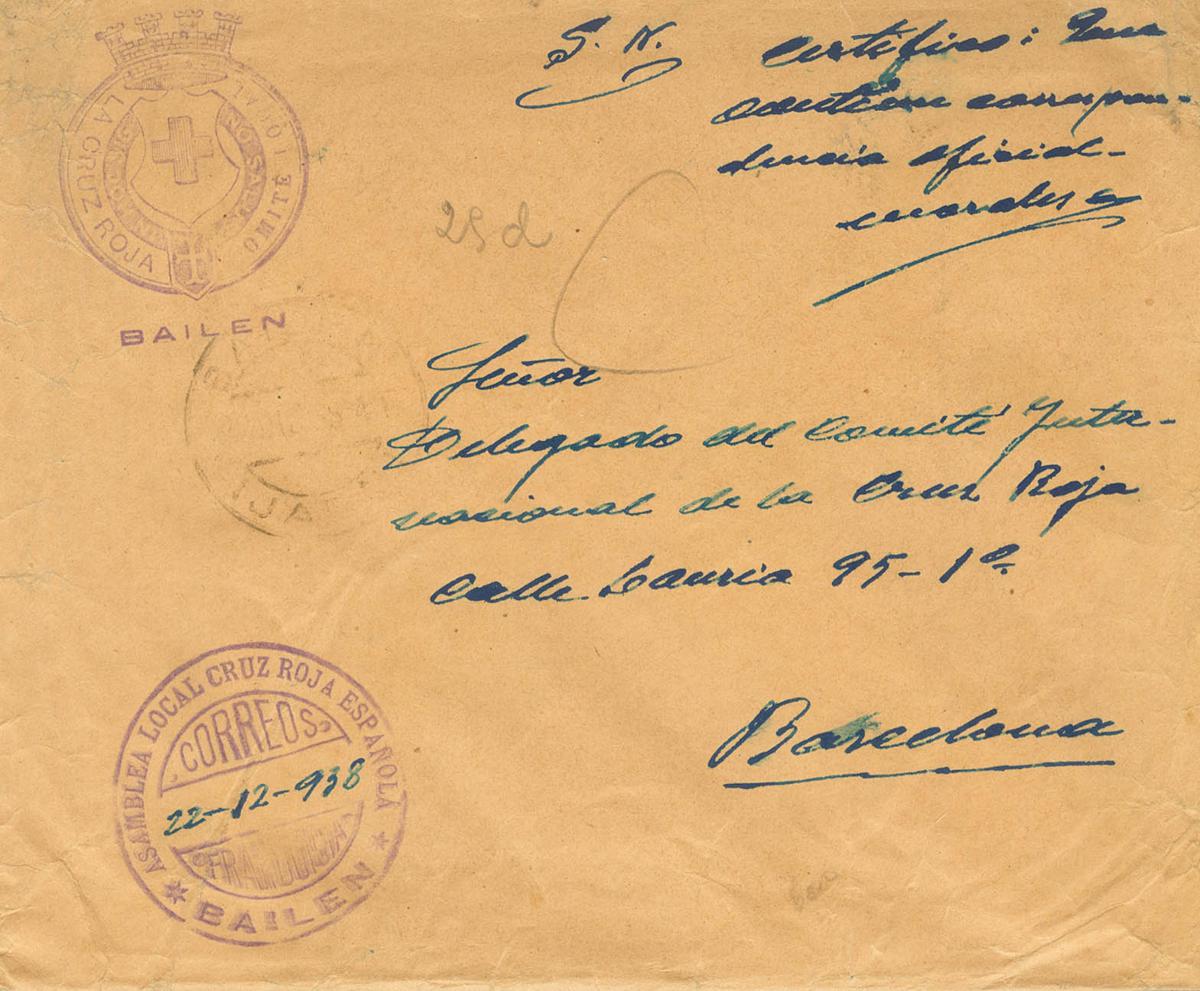 S. N.
Certifico: Que
contiene correspon-
dencia oficial-
Morales
LA CRUZ ROJA
COMITÉ LOCAL
BAILEN
25 d
Señor
Delegado del Comité Inter-
nacional de la Cruz Roja
Calle Lauria 95-1º
Barcelona
ASAMBLEA LOCAL CRUZ ROJA ESPAÑOLA
CORREOS
22-12-938
FRANQUICIA
BAILEN